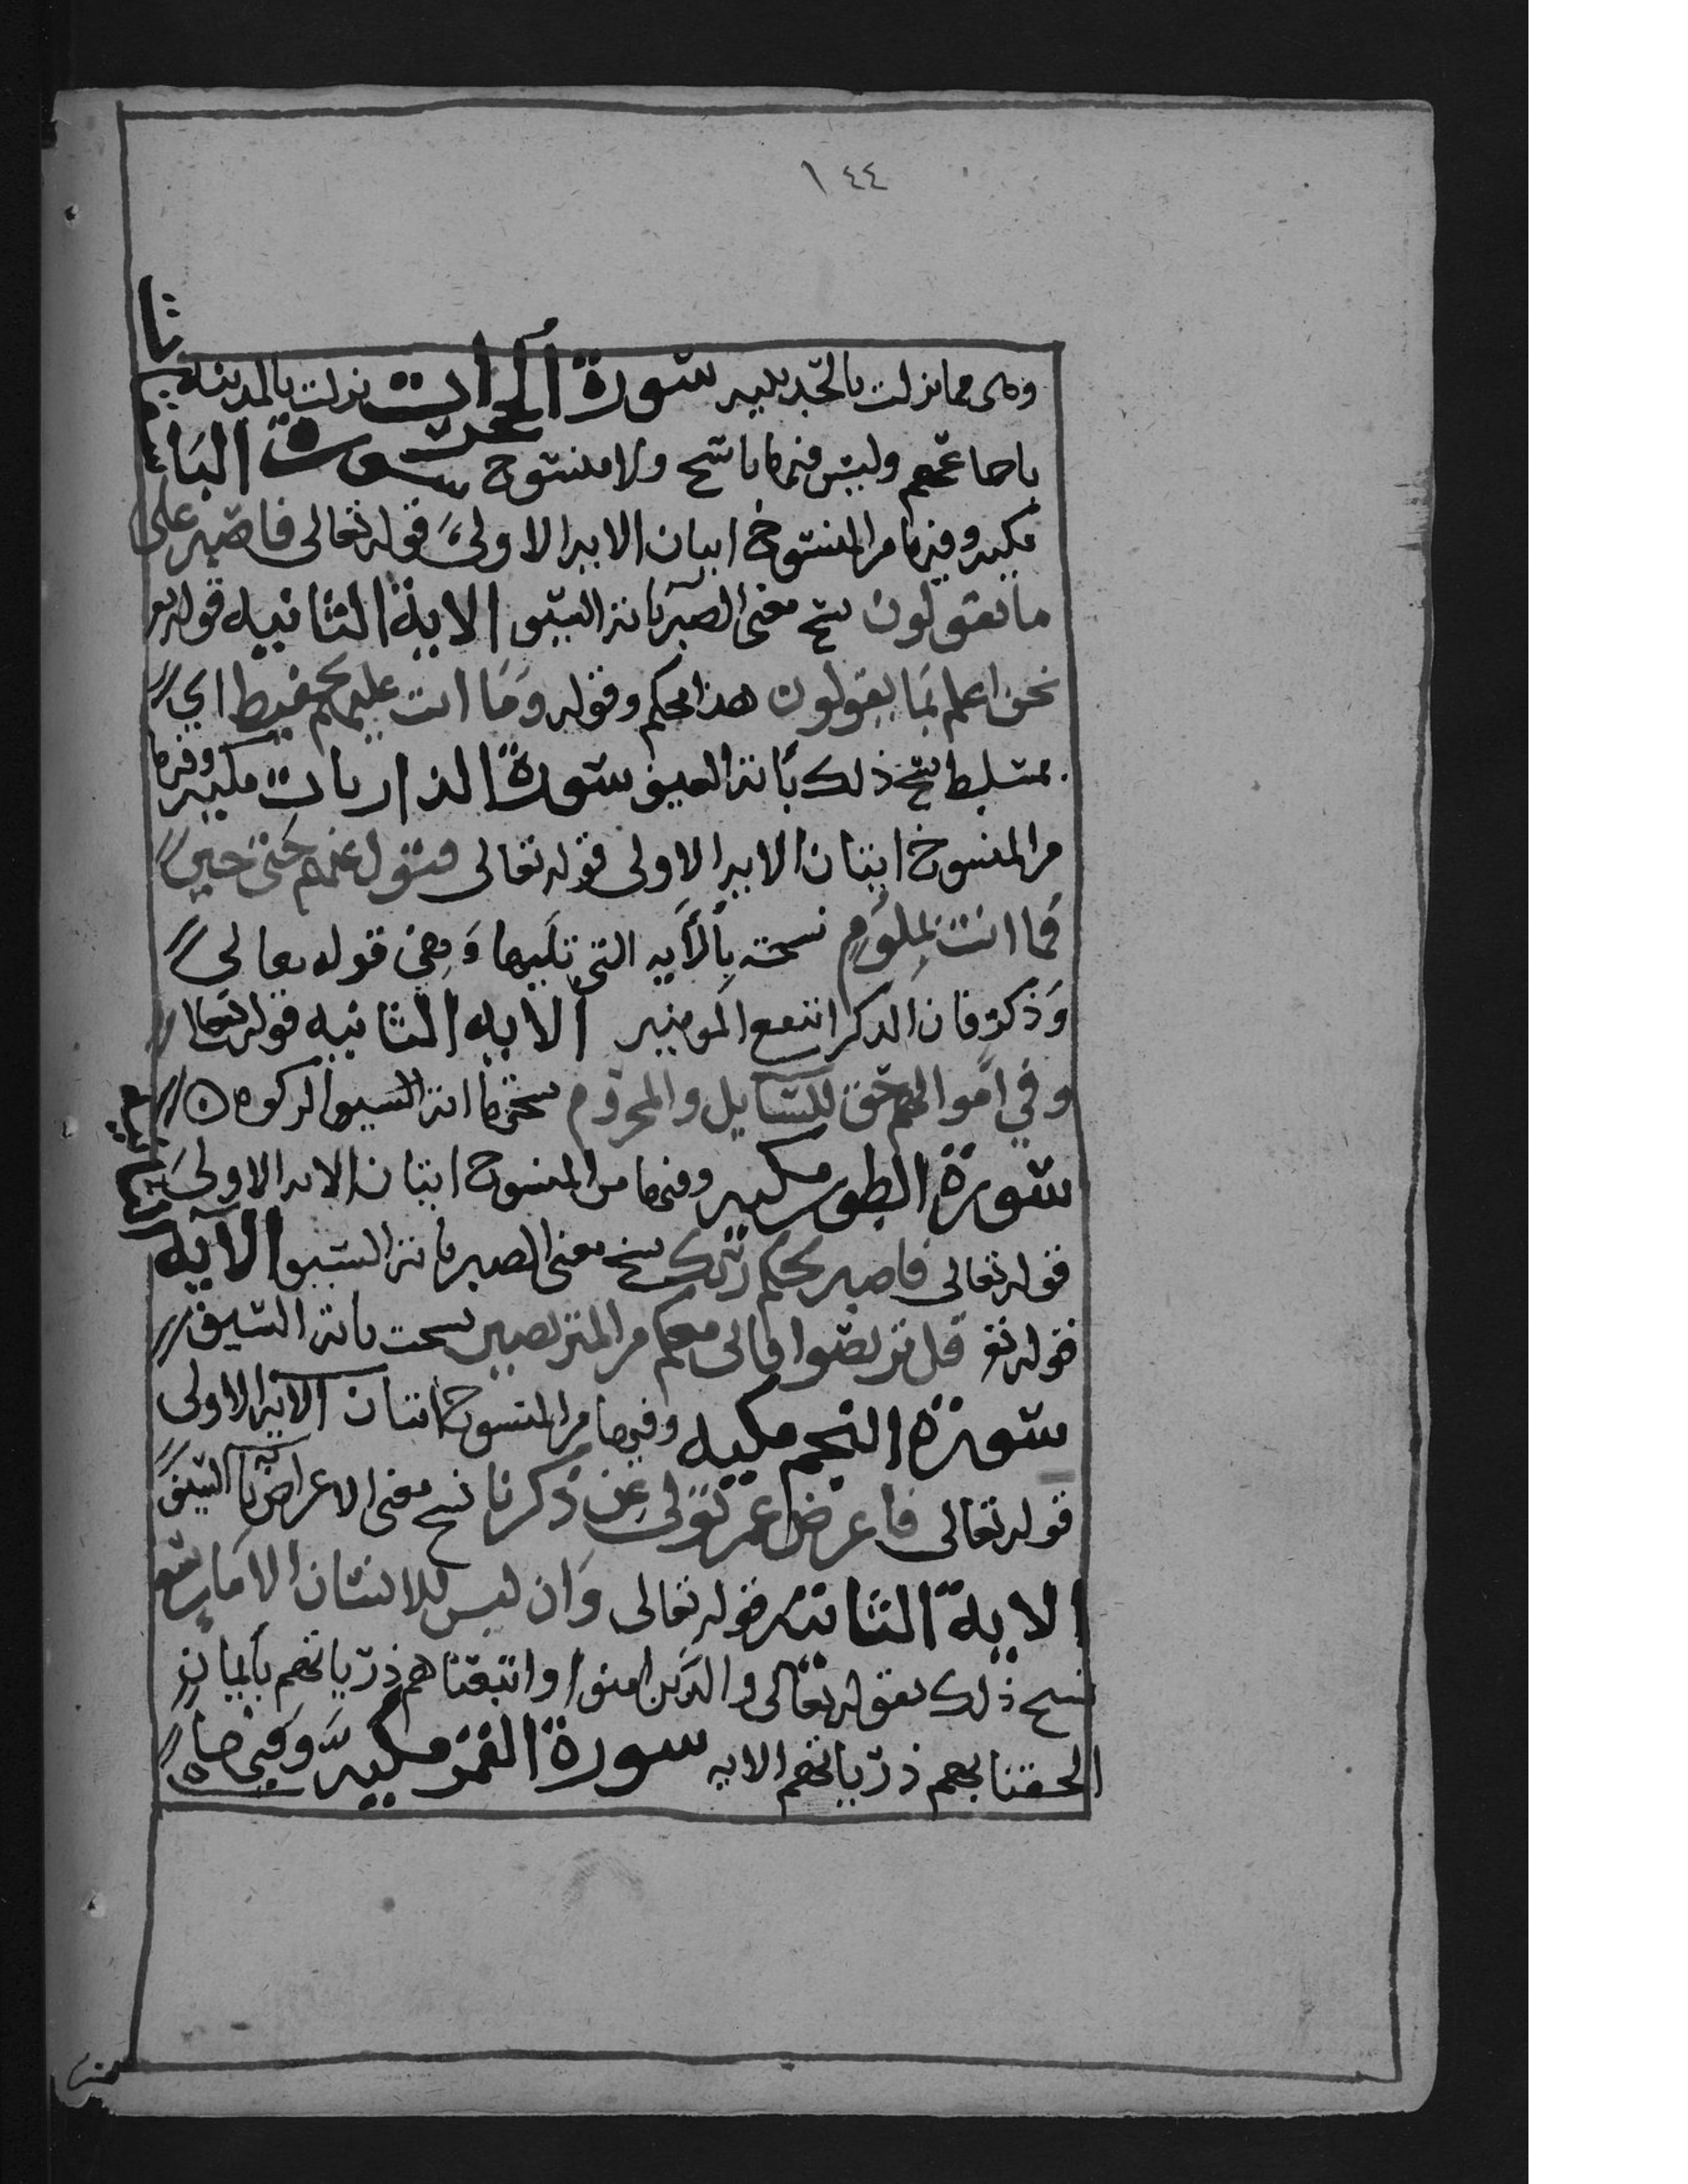 ١٤٤
وهى مما نزلت بالحديبيه سورة الحجرات نزلت بالمدينه
باجماعهم وليس فيها ناسخ ولا منسوخ سورة
مكيه وفيها من المنسوخ ايتان الايه الاولى قوله تعالى فاصبر على
ما يقولون نسخ معنى الصبر باية السيف الاية الثانيه قوله تع
نحن اعلم بما يقولون هذا محكم وقوله وما انت عليهم بحفيظ اي
بمتسلط نسخ ذلك باية السيف سورة الذاريات مكيه وفيها
من المنسوخ ايتان الايه الاولى قوله تعالى فتول عنهم حتى حين
فما انت بملوم نسخت بالايه التي تليها وهي قوله تعالى
وذكر فان الذكرا تنفع المومنين الايه الثانيه قوله تعالى
وفي اموالهم حق للسايل والمحروم نسختها اية السيف الزكوه
سورة الطور مكيه وفيها من المنسوخ ايتان الايه الاولى
قوله تعالى فاصبر لحكم ربك نسخ معنى الصبر باية السيف الآية
قوله تع قل تربصوا فانى معكم من المتربصين نسخت باية السيف
سورة النجم مكيه وفيها من المنسوخ ايتان الايه الاولى
قوله تعالى فاعرض عمن تولى عن ذكرنا نسخ معنى الاعراض باية السيف
الاية الثانيه قوله تعالى وان ليس للانسان الا ما سعى
نسخ ذلك بقوله تعالى والذين امنوا واتبعناهم ذرياتهم بايمان
الحقنا بهم ذرياتهم الايه سورة القمر مكيه وفيها